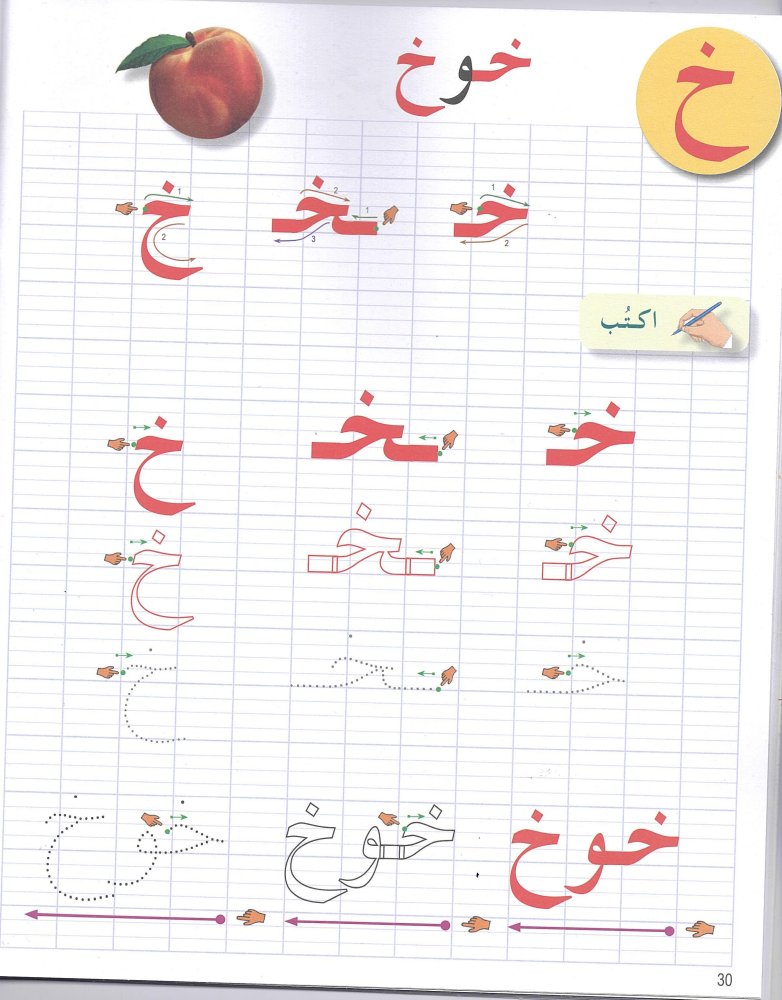 خ
خوخ
خـ ـخـ خ
1 2 1 2 3 1 2
اكتُب
خـ ـخـ خ
خـ ـخـ خ
خـ ـخـ خ
خوخ خوخ خوخ
30